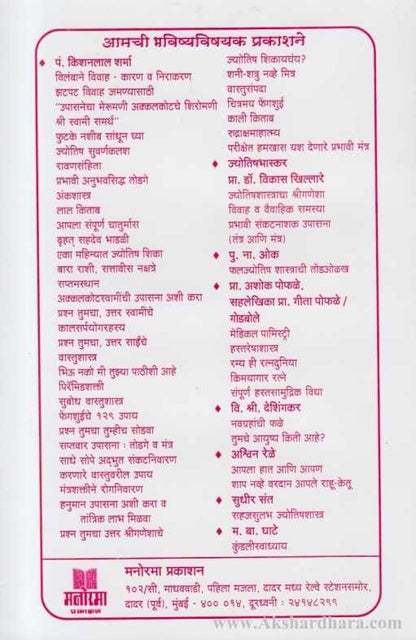 आमची भविष्यविषयक प्रकाशने
♦ पं. किशनलाल शर्मा
विलंबाने विवाह - कारण व निराकरण
झटपट विवाह जमण्यासाठी
"उपासनेचा मेरूमणी अक्कलकोटचे शिरोमणी
श्री स्वामी समर्थ"
फुटके नशीब सांधून घ्या
ज्योतिष सुवर्णकलश
रावणसंहिता
प्रभावी अनुभवसिद्ध तोडगे
अंकशास्त्र
लाल किताब
आपला संपूर्ण चातुर्मास
बृहत् सहदेव भाडळी
एका महिन्यात ज्योतिष शिका
बारा राशी, सत्तावीस नक्षत्रे
सप्तमस्थान
अक्कलकोटस्वामींची उपासना अशी करा
प्रश्न तुमचा, उत्तर स्वामींचे
कालसर्पयोगरहस्य
प्रश्न तुमचा, उत्तर साईंचे
वास्तुशास्त्र
भिऊ नको मी तुझ्या पाठीशी आहे
पिरॅमिडशक्ती
सुबोध वास्तुशास्त्र
फेंगशुईचे १२९ उपाय
प्रश्न तुमचा तुम्हीच सोडवा
सप्तवार उपासना : तोडगे व मंत्र
साधे सोपे अद्भुत संकटनिवारण
करणारे वास्तुवरील उपाय
मंत्रशक्तीने रोगनिवारण
हनुमान उपासना अशी करा व
तांत्रिक लाभ मिळवा
प्रश्न तुमचा उत्तर श्रीगणेशाचे
ज्योतिष शिकायचंय?
शनी-शत्रू नव्हे मित्र
वास्तुसंपदा
चित्रमय फेंगशुई
काली किताब
रुद्राक्षमाहात्म्य
परीक्षेत हमखास यश देणारे प्रभावी मंत्र
♦ ज्योतिषभास्कर
प्रा. डॉ. विकास खिल्लारे
ज्योतिषशास्त्राचा श्रीगणेशा
विवाह व वैवाहिक समस्या
प्रभावी संकटनाशक उपासना
(तंत्र आणि मंत्र)
♦ पु. ना. ओक
फलज्योतिष शास्त्राची तोंडओळख
♦ प्रा. अशोक पोफळे,
सहलेखिका प्रा. गीता पोफळे /
गोडबोले
मेडिकल पामिस्ट्री
हस्तरेषाशास्त्र
रम्य ही रत्नदुनिया
किमयागार रत्ने
संपूर्ण हस्तसामुद्रिक विद्या
♦ वि. श्री. देशिंगकर
नवग्रहांची फळे
तुमचे आयुष्य किती आहे?
♦ अश्विन रेळे
आपला हात आणि आपण
शाप नव्हे वरदान आपले राहू-केतू
♦ सुधीर संत
सहजसुलभ ज्योतिषशास्त्र
♦ म. बा. घाटे
कुंडलीस्वाध्याय
मनोरमा
प्रकाशन
मनोरमा प्रकाशन
१०२/सी, माधववाडी, पहिला मजला, दादर मध्य रेल्वे स्टेशनसमोर,
दादर (पूर्व), मुंबई - ४०० ०१४, दूरध्वनी : २४१४८२९९
www.Akshardhara.com